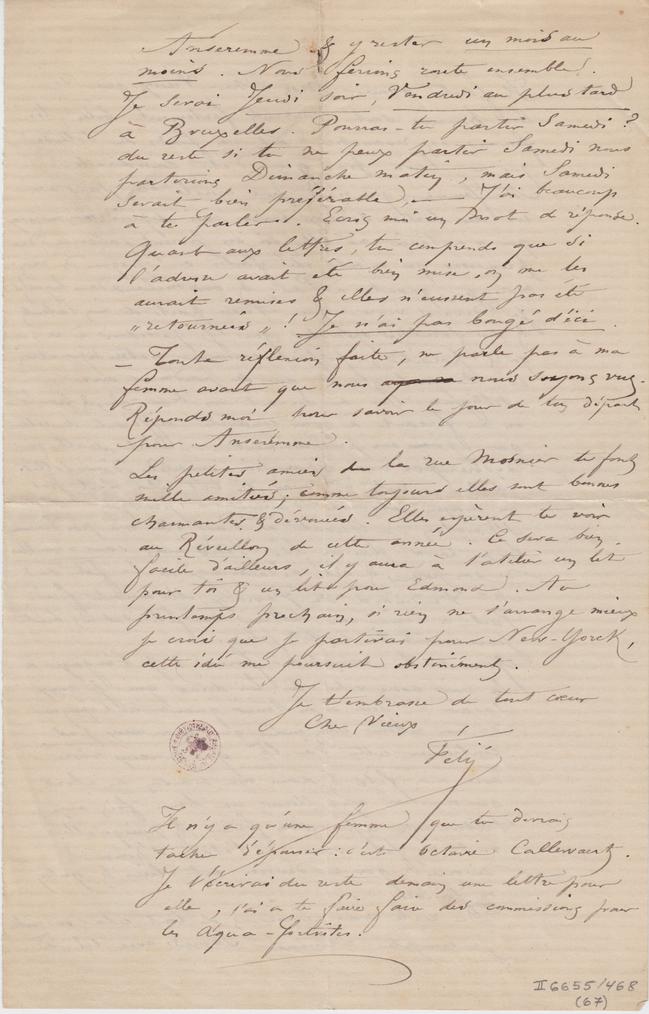 Anseremme & y rester un mois au
moins. Nous ferions route ensemble.
Je serai Jeudi soir, Vendredi au plus tard
à Bruxelles. Pourras-tu partir Samedi?
du reste si tu ne peux partir Samedi nous
partirions Dimanche matin, mais Samedi
serait bien préférable, — J'ai beaucoup
à te parler. Ecris moi un mot de réponse.
Quant aux lettres, tu comprends que si
l'adresse avait été bien mise, on me les
aurait remises & elles n'eussent pas été
"retournées"! Je n'ai pas bougé d'ici.
— Toute réflexion faite, ne parle pas à ma
femme avant que nous nous soyons vus.
Réponds moi pour savoir le jour de ton départ
pour Anseremme.
Les petites amies de la rue Mosnier te font
mille amitiés; comme toujours elles sont bonnes
charmantes & dévouées. Elles espèrent te voir
au Réveillon de cette année. Ce sera bien
facile d'ailleurs, il y aura à l'atelier un lit
pour toi & un lit pour Edmond. Au
printemps prochain, si rien ne s'arrange mieux
je crois que je partirai pour New-Yorck,
cette idée me poursuit obstinément.
Je t'embrasse de tout cœur
Cher Vieux
Fély
Il n'y a qu'une femme que tu devrais
tacher d'épouser: c'est Octavie Callewaert.
Je t'écrirai du reste demain une lettre pour
elle, j'ai à te faire faire des commissions pour
les Aqua-fortistes.
II 6655/468
(67)